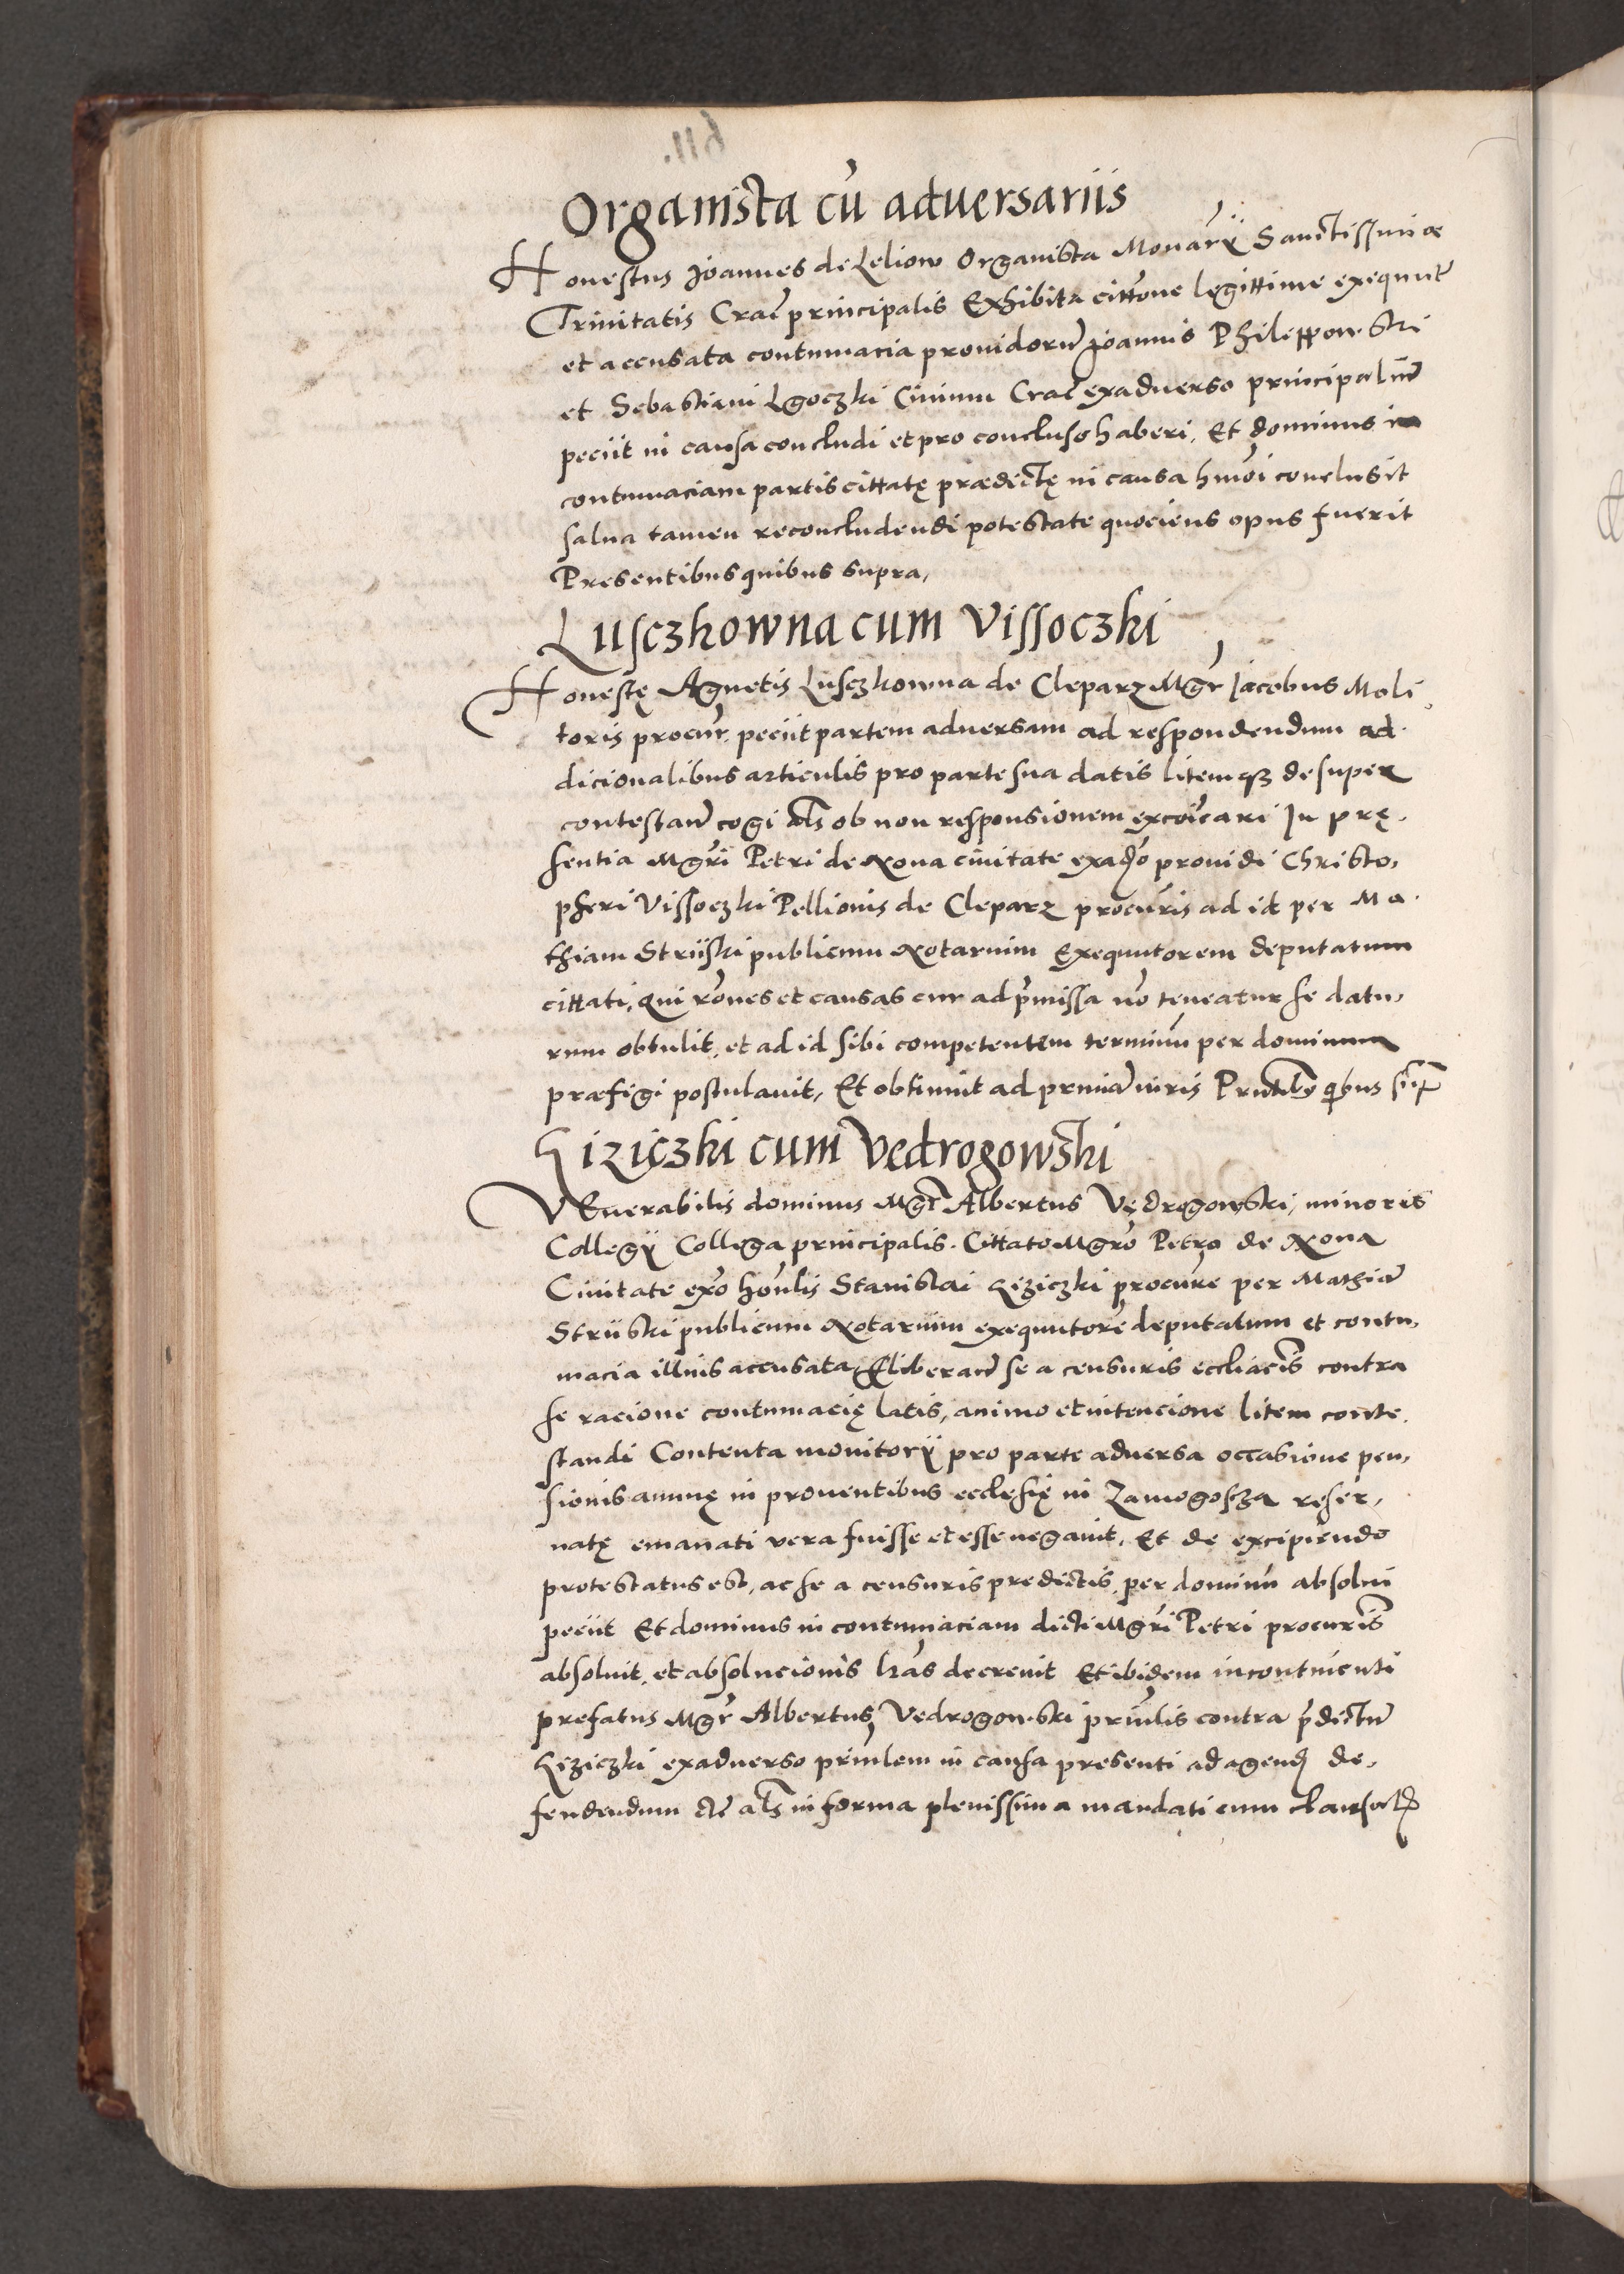 Organista cū adversariis
Honestus Joannes de Leliow Organista Monar̄ij Sanctissimæ
Trinitatis Crac̄ principalis Exhibita citt̄one legittime exequut̄
et accusata contumacia prouidorum̄ Joannis Philippowski
et Sebastiani Lgoczki Ciuium Crac̄ exaduerso principaliu̅m
peciit in causa concludi et pro concluso haberi, Et dominus in
contumaciam partis cittatę prædictę in causa hm̄oi conclusit
salua tamen reconcludendi potestate quociens opus fuerit
Presentibus quibus supra,
Lusczkowna cum Vissoczki
Honestę Agnetis Lusczkowna de Cleparz Mgr̄ Jacobus Moli
toris procur̄, peciit partem aduersam ad respondendum ad
dicionalibus articulis pro parte sua datis litemqꝫ desuper
contestan̄d cogi al̄s ob non responsionem excōicari In prę
sentia Mgr̄i Petri de Noua ciuitate exad̄o prouidi Christo,
pheri Vissoczki Pellionis de Cleparz procur̄is ad id per Ma
thiam Strijski publicum Notarium Exequutorem deputatum
cittati, Qui rōnes et causas cur ad p̄missa nō teneatur se datu,
rum obtulit, et ad id sibi competentem terminū per dominum
præfigi postulauit, Et obtinuit ad primā iuris Pn̄tibus qibus
Ziziczki cum Vedrogowski
VEnerabilis dominus Mgr̄ Albertus Vędrogowski, minoris
Collegij Collega principalis. Cittato Mgr̄o Petro de Noua
Ciuitate ex̄o hon̄lis Stanislai Ziziczki procur̄e per Mathiā
Strijski publicum Notarium exequutorē deputatum et contu,
macia illius accusata, liberan̄d se a censuris eccliacīs contra
se racione contumacię latis, animo et intencione litem conte
standi Contenta monitorij pro parte aduersa occasione pen,
sionis annuę in prouentibus ecclesię in Zamogoscza reser,
uatę emanati vera fuisse et esse negauit, Et de excipiendo
protestatus est, ac se a censuris predictis per dominū absolui
peciit Et dominus in contumaciam dicti Mgr̄i Petri procur̄is
absoluit, et absolucionis lr̄as decreuit Et ibidem incontinenti
prefatus Mgr̄ Albertus Vedrogowski prin̄lis contra p̄dictum
Ziziczki exaduerso prin̄lem in causa presenti ad agend̄ de,
fendendum et̄c al̄s in forma plenissima mandati cum